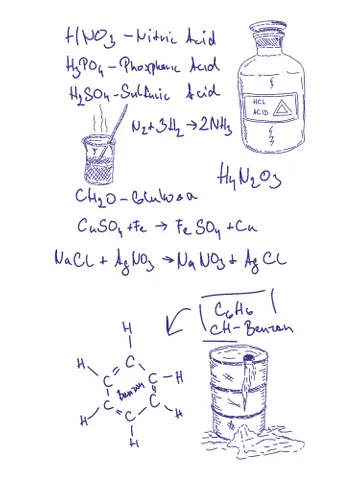 HNO3 - Nitric Acid
H3PO4 - Phosphoric Acid
H2SO4 - Sulfuric Acid
N2+3H2→2NH3
HCL
ACID
H4N2O3
CH2O - Glukosa
CuSO4+Fe → FeSO4+Cu
NaCl + AgNO3 → NaNO3 + AgCl
C6H6
CH-Benzan
H
H C H
C C
Benzan
C C
H C H
H